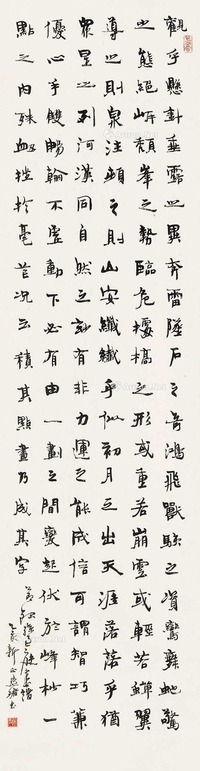 觀乎懸針垂露之異奔雷墜石之奇鴻飛獸駭之資鸞舞蛇驚
之態絕岸頹峯之勢臨危據槁之形或重若崩雲或輕若蟬翼
導之則泉注頓之則山安纖纖乎似初月之出天涯落落乎猶
眾星之列河漢同自然之妙有非力運之能成信可謂智巧兼
優心手雙暢翰不虛動下必有由一劃之間變起伏於峰杪一
點之內殊衄挫於毫芒況云積其點畫乃成其字
節錄孫過庭書譜
乙亥新正